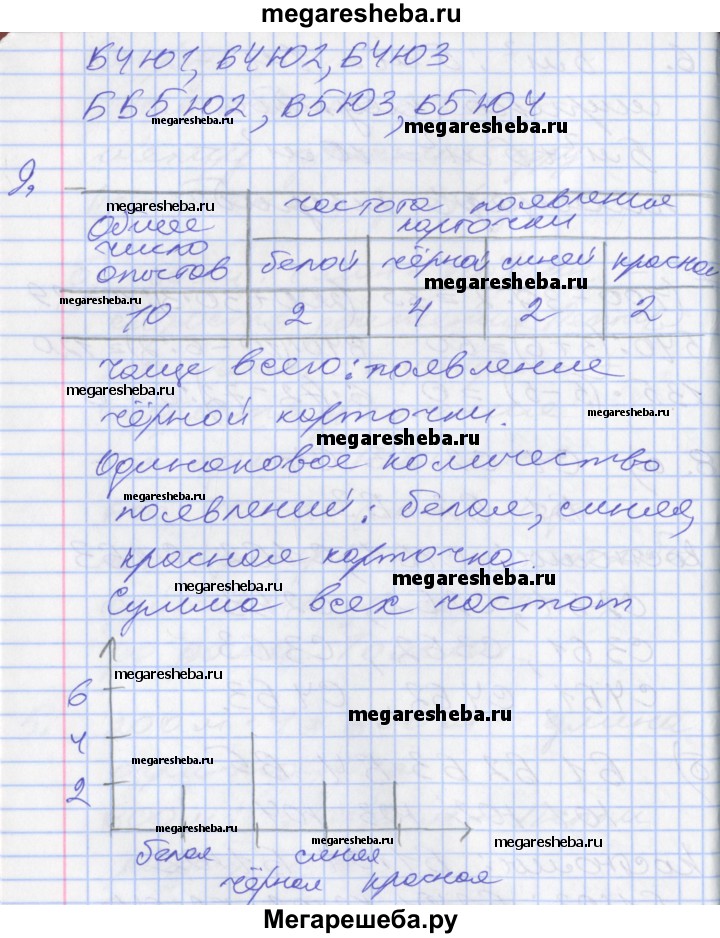 megaresheba.ru
Б4Ю1, Б4Ю2, Б4Ю3
ББ5Ю2, Б5Ю3, Б5Ю4
megaresheba.ru
megaresheba.ru
9,
megaresheba.ru
частота появления
Общее
карточки
число
опытов
белой чёрной синей красной
megaresheba.ru
megaresheba.ru
10 2 4 2 2
чаще всего: появление
megaresheba.ru
чёрной карточки.
megaresheba.ru
megaresheba.ru
Одинаковое количество
megaresheba.ru
появлений: белая, синяя,
красная карточка.
megaresheba.ru
megaresheba.ru
Сумма всех частот
megaresheba.ru
6
megaresheba.ru
4
megaresheba.ru
2
megaresheba.ru
megaresheba.ru
megaresheba.ru
белая синяя
чёрная красная
Мегарешеба.ру